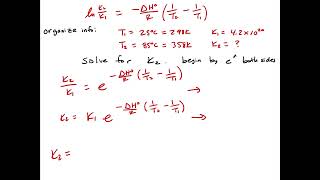 ln K₂/K₁ = -ΔH°/R (1/T₂ - 1/T₁)
organize info: T₁ = 25°C = 298K K₁ = 4.2 x 10
T₂ = 85°C = 358K K₂ = ?
Solve for K₂ begin by eˣ both sides
K₂/K₁ = e^(-ΔH°/R (1/T₂ - 1/T₁)) →
K₂ = K₁ e^(-ΔH°/R (1/T₂ - 1/T₁)) →
K₂ =